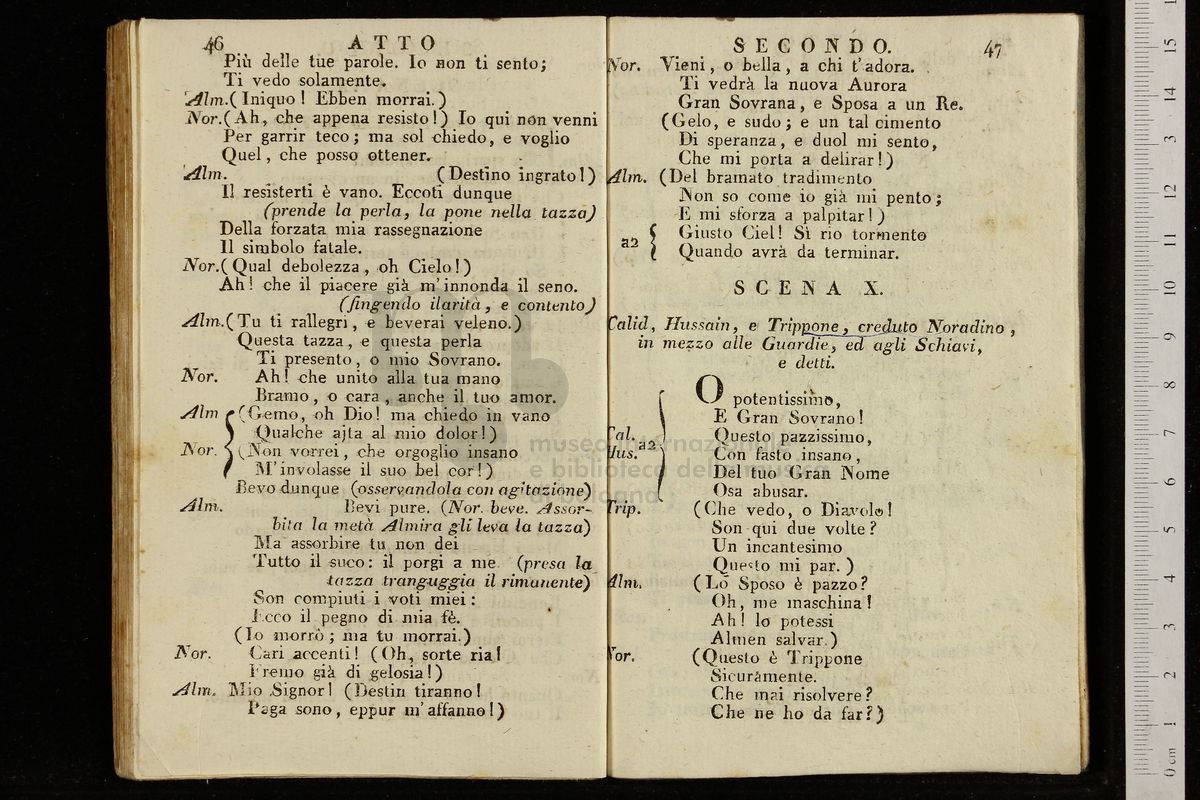 46 ATTO
Più delle tue parole. Io non ti sento;
Ti vedo solamente.
Alm.(Iniquo! Ebben morrai.)
Nor.(Ah, che appena resisto!) Io qui non venni
Per garrir teco; ma sol chiedo, e voglio
Quel, che posso ottener.
Alm. (Destino ingrato!)
Il resisterti è vano. Eccoti dunque
(prende la perla, la pone nella tazza)
Della forzata mia rassegnazione
Il simbolo fatale.
Nor.(Qual debolezza, oh Cielo!)
Ah! che il piacere già m'innonda il seno.
(fingendo ilarità, e contento)
Alm.(Tu ti rallegri, e beverai veleno.)
Questa tazza, e questa perla
Ti presento, o mio Sovrano.
Nor. Ah! che unito alla tua mano
Bramo, o cara, anche il tuo amor.
Alm (Gemo, oh Dio! ma chiedo in vano
Qualche ajta al mio dolor!)
Nor. (Non vorrei, che orgoglio insano
M'involasse il suo bel cor!)
Bevo dunque (osservandola con agitazione)
Alm. Bevi pure. (Nor. beve. Assor-
bita la metà Almira gli leva la tazza)
Ma assorbire tu non dei
Tutto il suco: il porgi a me. (presa la
tazza tranguggia il rimanente)
Son compiuti i voti miei:
Ecco il pegno di mia fè.
(Io morrò; ma tu morrai.)
Nor. Cari accenti! (Oh, sorte ria!
Fremo già di gelosia!)
Alm. Mio Signor! (Destin tiranno!
Paga sono, eppur m'affanno!)
SECONDO. 47
Nor. Vieni, o bella, a chi t'adora.
Ti vedrà la nuova Aurora
Gran Sovrana, e Sposa a un Re.
(Gelo, e sudo; e un tal cimento
Di speranza, e duol mi sento,
Che mi porta a delirar!)
Alm. (Del bramato tradimento
Non so come io già mi pento;
E mi sforza a palpitar!)
a2 Giusto Ciel! Sì rio tormento
Quando avrà da terminar.
SCENA X.
Calid, Hussain, e Trippone, creduto Noradino,
in mezzo alle Guardie, ed agli Schiavi,
e detti.
O potentissimo,
E Gran Sovrano!
Cal. Questo pazzissimo,
Hus. a2 Con fasto insano,
Del tuo Gran Nome
Osa abusar.
Trip. (Che vedo, o Diavolo!
Son qui due volte?
Un incantesimo
Questo mi par.)
Alm. (Lo Sposo è pazzo?
Oh, me maschina!
Ah! lo potessi
Almen salvar.)
Nor. (Questo è Trippone
Sicuramente.
Che mai risolvere?
Che ne ho da far?)
museo internazionale
e biblioteca della musica
di bologna
0 cm 1 2 3 4 5 6 7 8 9 10 11 12 13 14 15